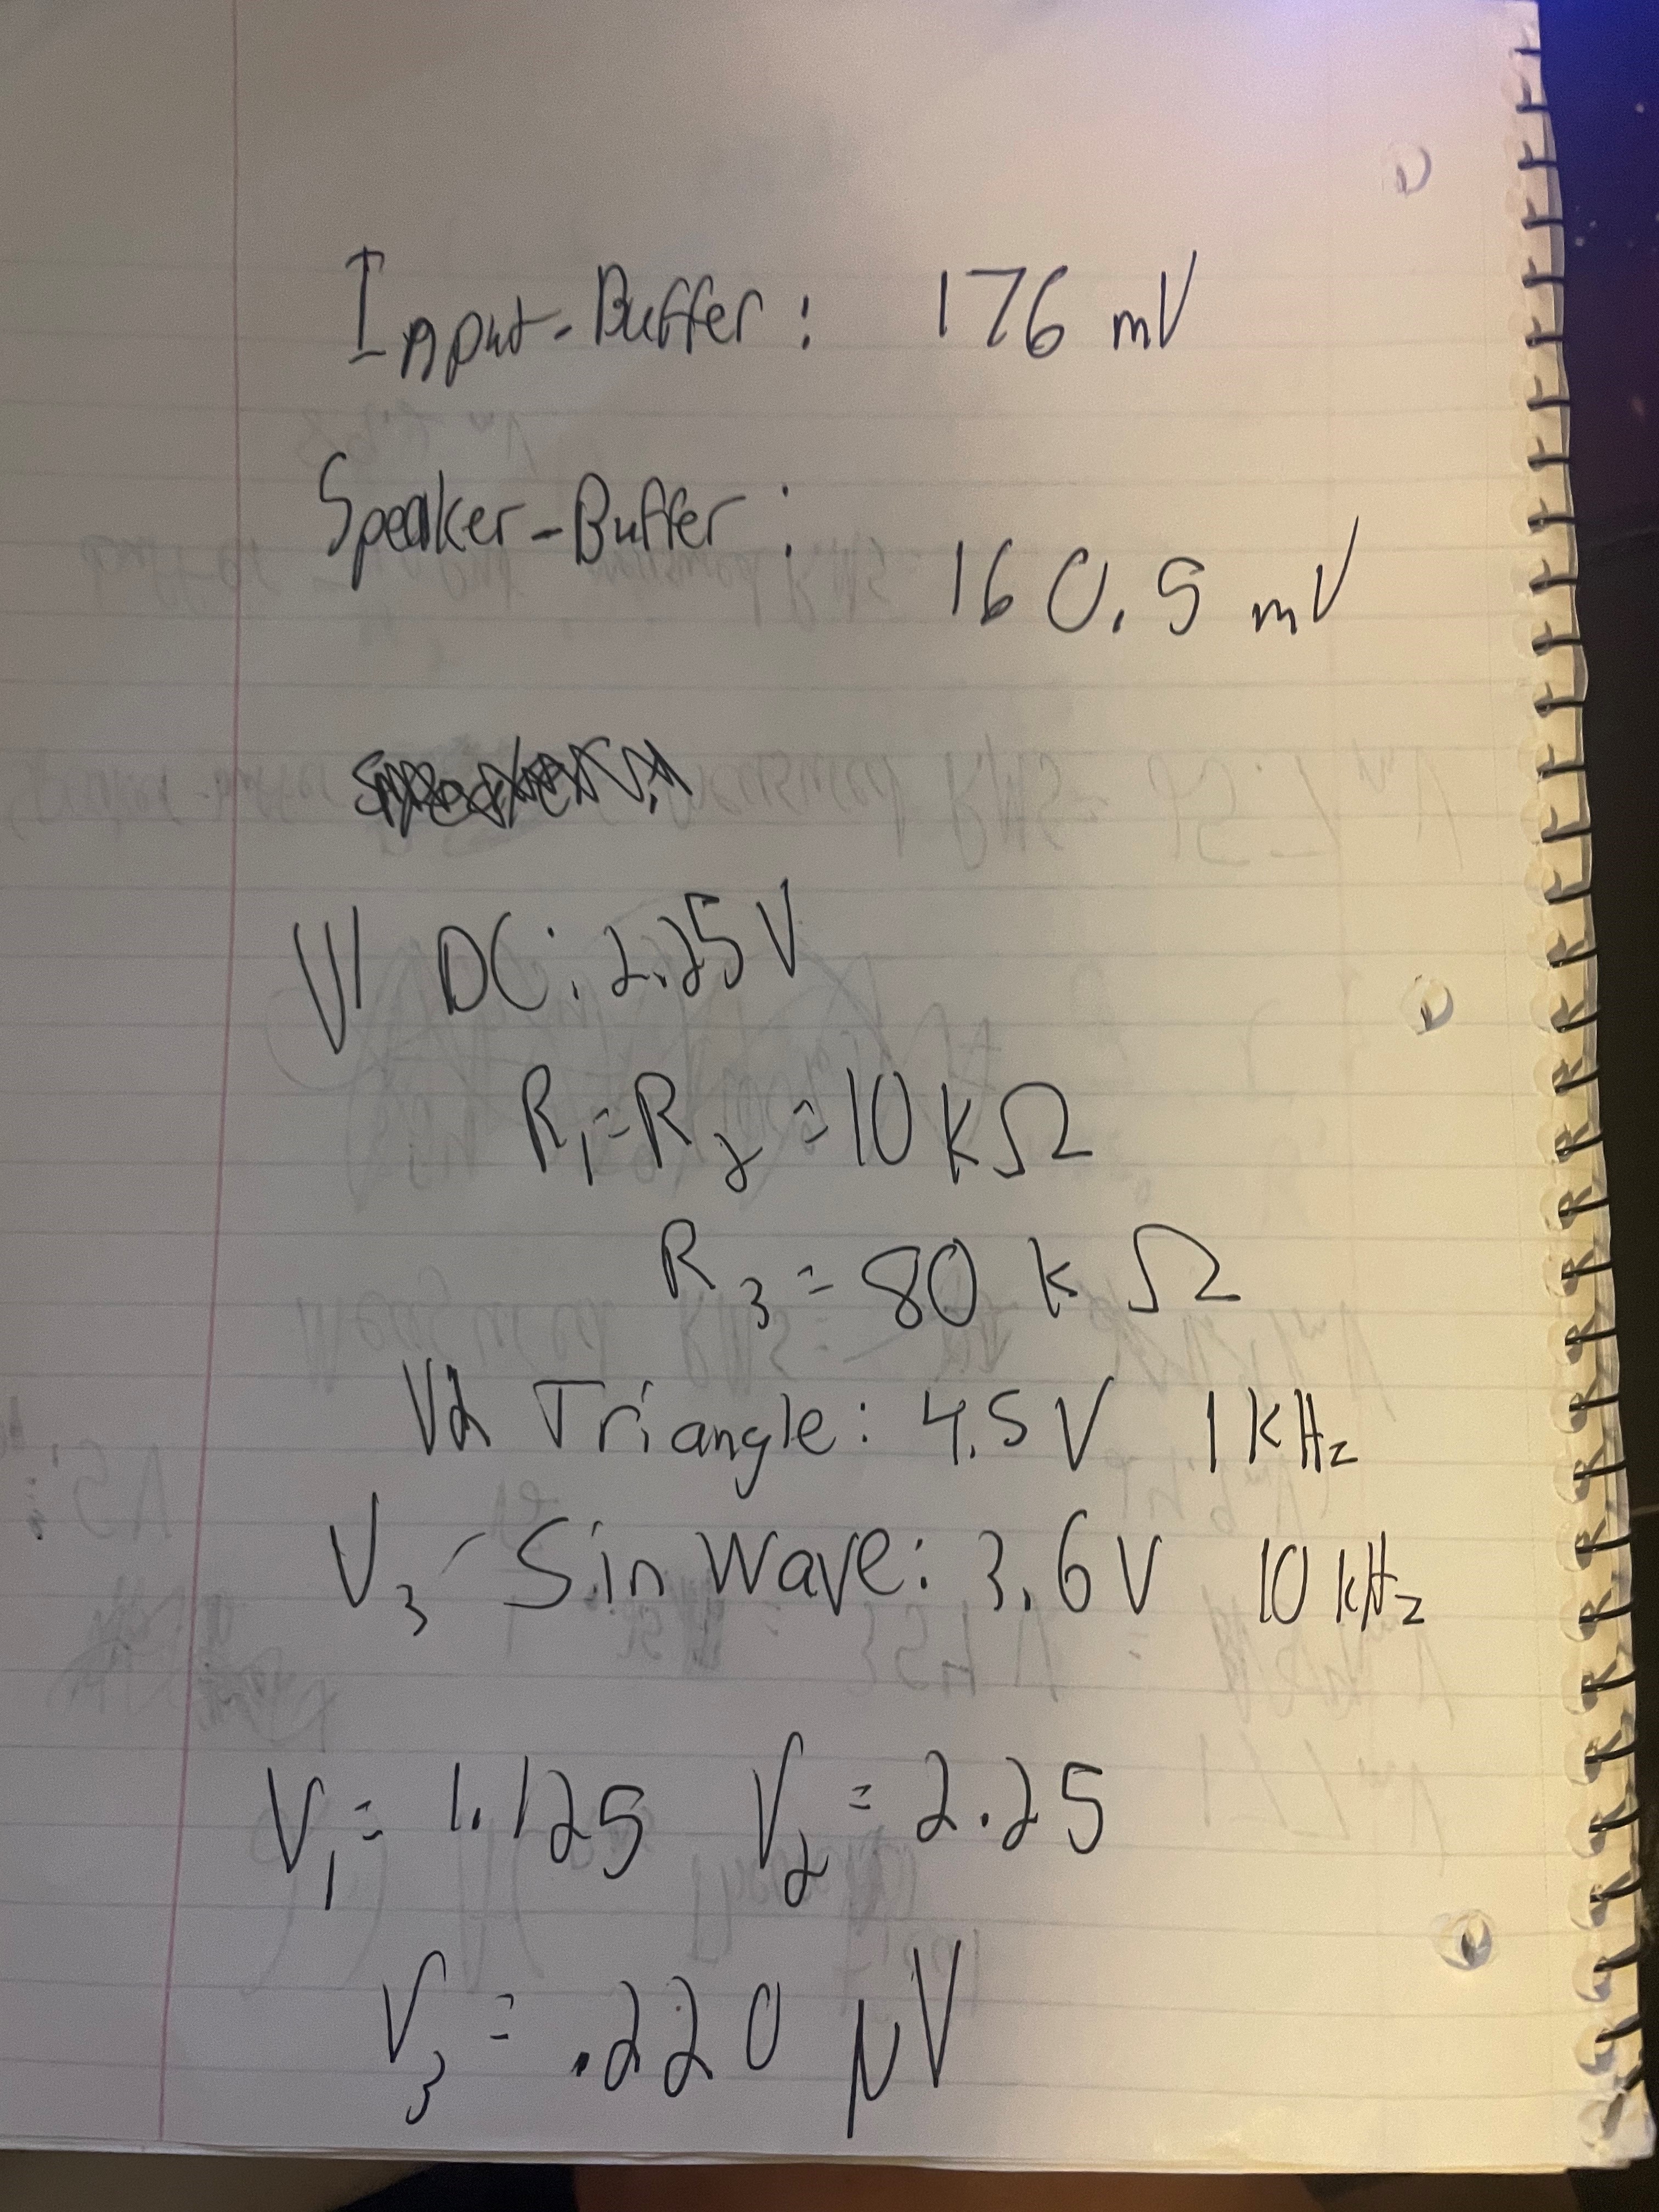 Input-Buffer: 176 mV
Speaker-Buffer: 160.5 mV
V1 DC: 2.25 V
R₁=R₂=10 kΩ
R₃=80 kΩ
V2 Triangle: 4.5 V 1 kHz
V₃ - Sin Wave: 3.6 V 10 kHz
V₁= 1.125 V₂= 2.25
V₃= .220 µV